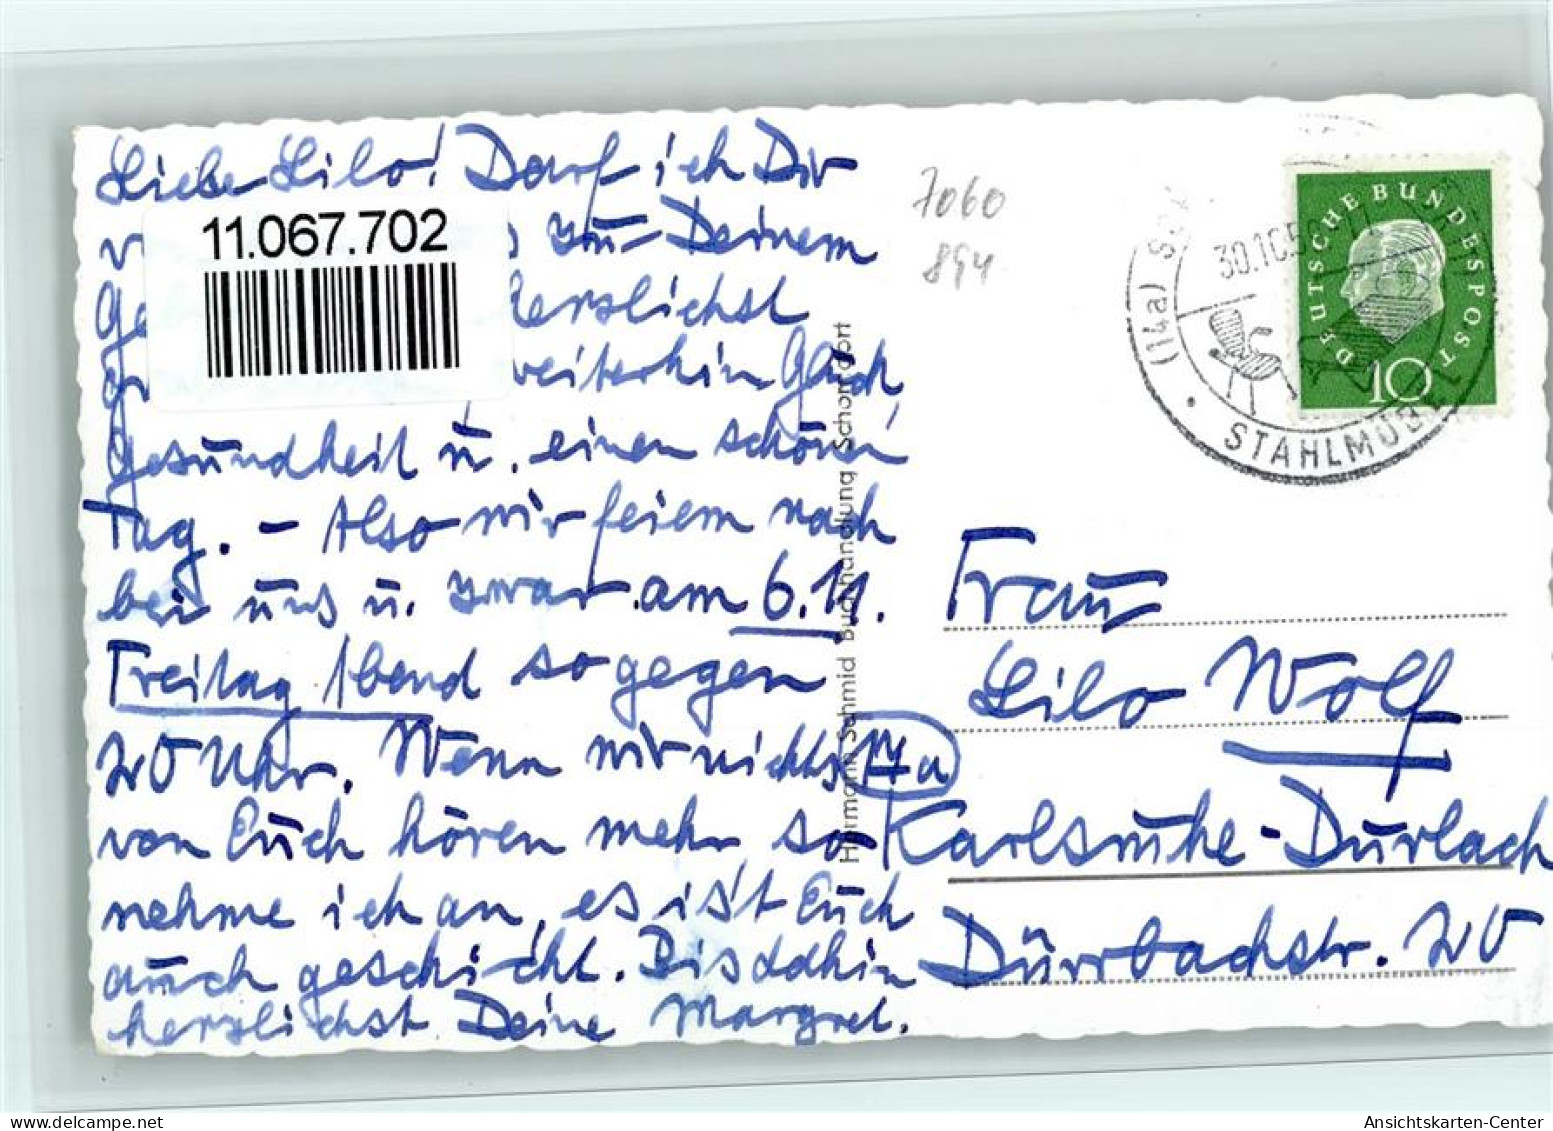 Liebe Lilo! Darf ich Dir
zu Deinem
herzlichst
weiterhin Glück,
Gesundheit u. einen schönen
Tag. – Also wir feiern nach
bei uns u. zwar am 6.11.
Freitag Abend so gegen
20 Uhr. Wenn wir nichts
von Euch hören mehr, so
nehme ich an, es ist Euch
auch geschickt. Bis dahin
herzlichst Deine Margret.
11.067.702
Hermann Schmid Buchhandlung Schorndorf
7060
894
(14a)
30.10.5
STAHLMÖBEL
DEUTSCHE BUNDESPOST
10
Frau
Lilo Wolf
17a
Karlsruhe-Durlach
Dürrbachstr. 20
Ansichtskarten-Center